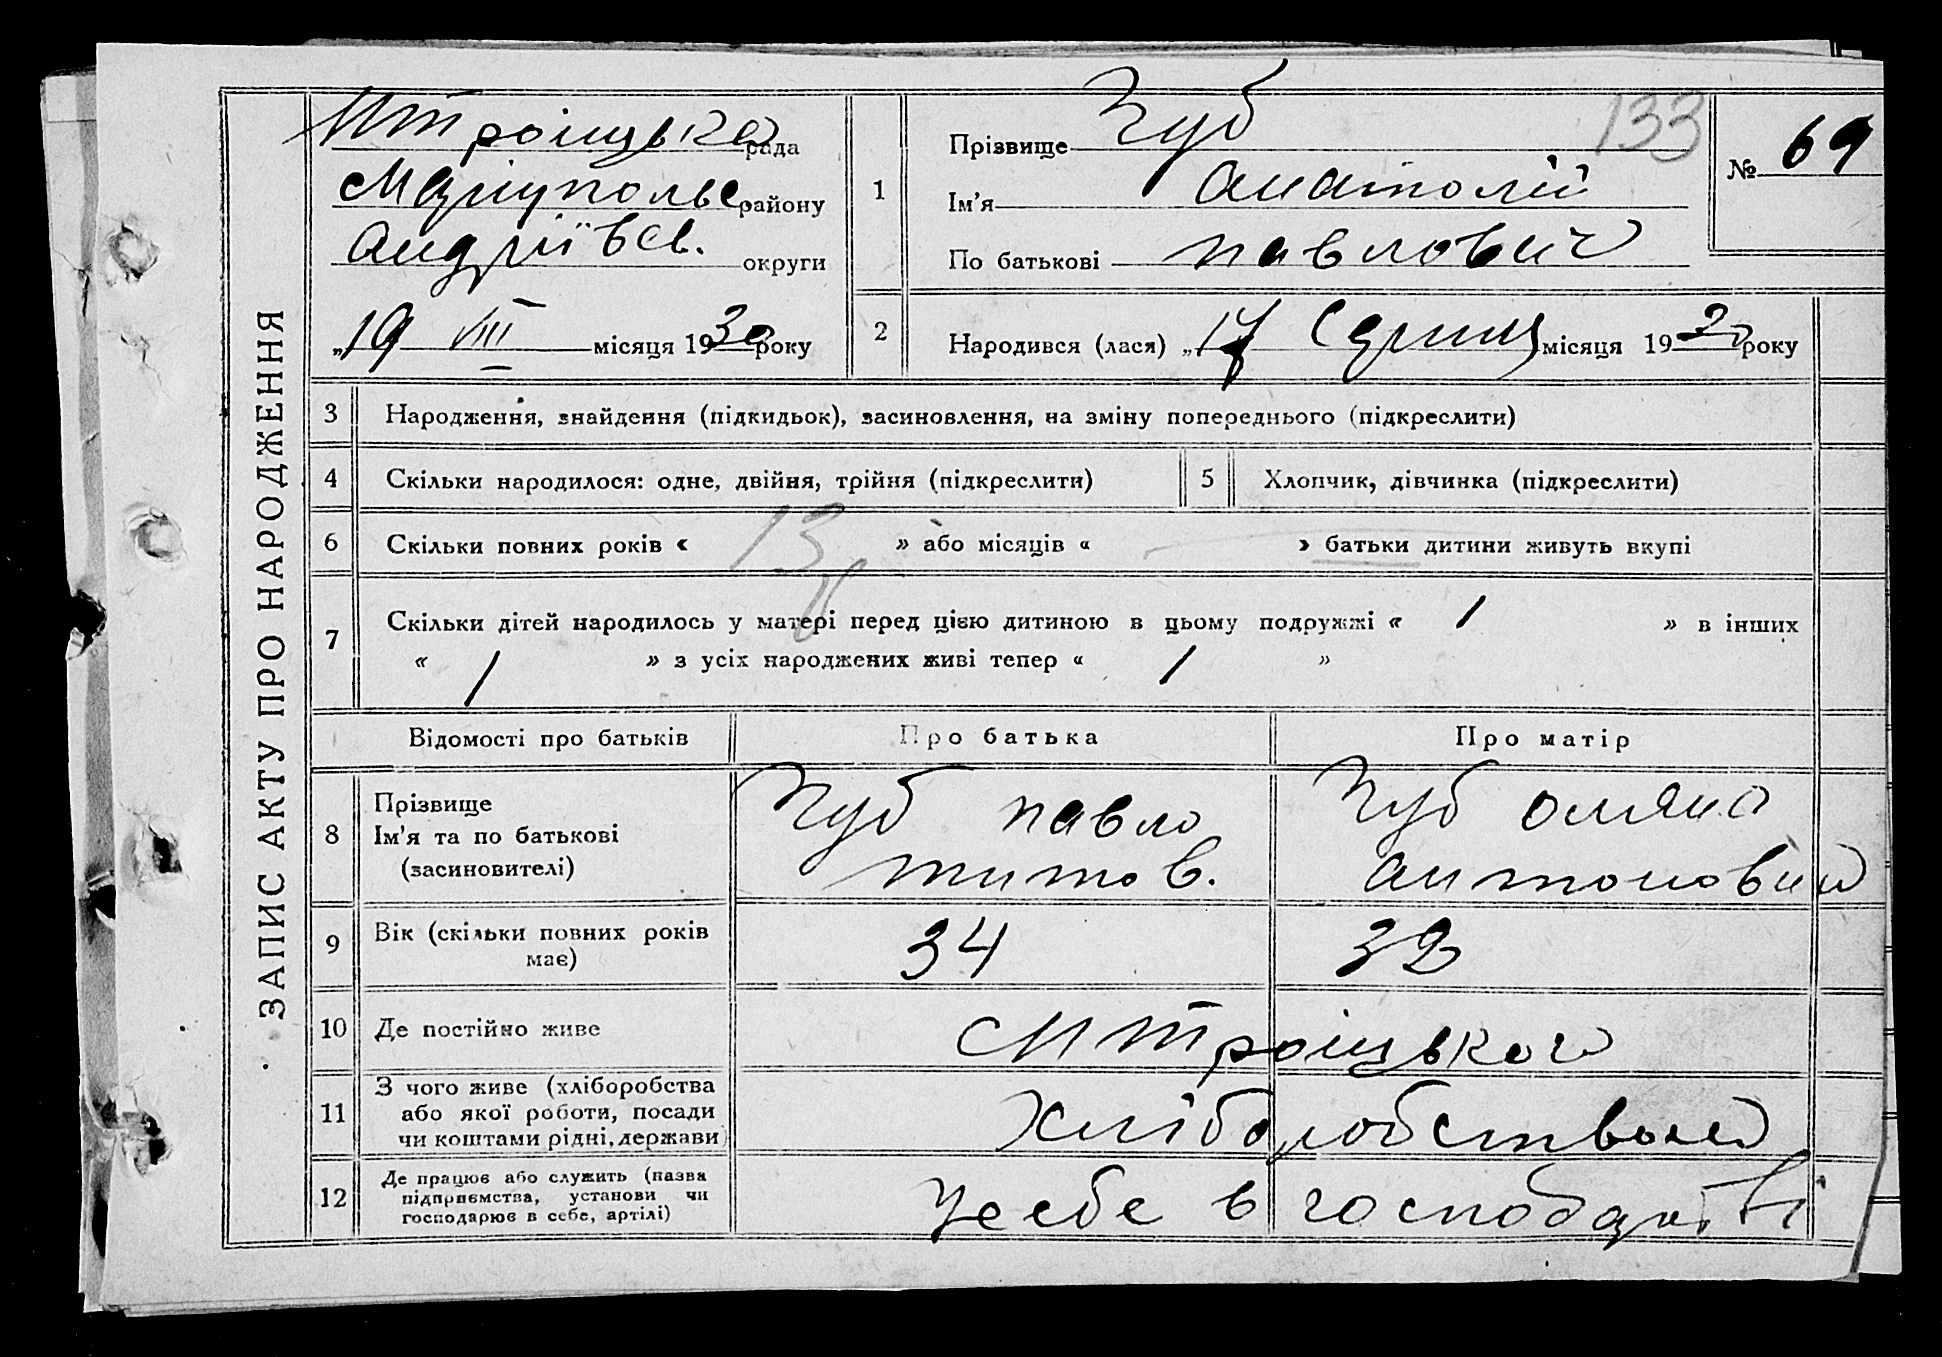 ЗАПИС АКТУ ПРО НАРОДЖЕННЯ
МТроіцька рада
Маріупольс. району
Андріївсв. округи
„19 VIII місяця 1930 року
1
Прізвище Чуб
133
Ім'я Анатолій
По батькові Павлович
№ 69
2
Народився (лася) „17 Серпня місяця 1930 року
3 Народження, знайдення (підкидьок), засиновлення, на зміну попереднього (підкреслити)
4 Скільки народилося: одне, двійня, трійня (підкреслити)
5 Хлопчик, дівчинка (підкреслити)
6 Скільки повних років « 13 » або місяців « — » батьки дитини живуть вкупі
7 Скільки дітей народилось у матері перед цією дитиною в цьому подружжі « 1 » в інших
« 1 » з усіх народжених живі тепер « 1 »
Відомості про батьків
Про батька
Про матір
8 Прізвище
Ім'я та по батькові
(засиновителі)
Чуб Павло
Титов.
Чуб Оляна
Антоновна
9 Вік (скільки повних років
має)
34
32
10 Де постійно живе
МТроіцького
11 З чого живе (хліборобства
або якої роботи, посади
чи коштами рідні, держави)
Хліборобством
12 Де працює або служить (назва
підприємства, установи чи
господарює в себе, артілі)
У себе в господарстві